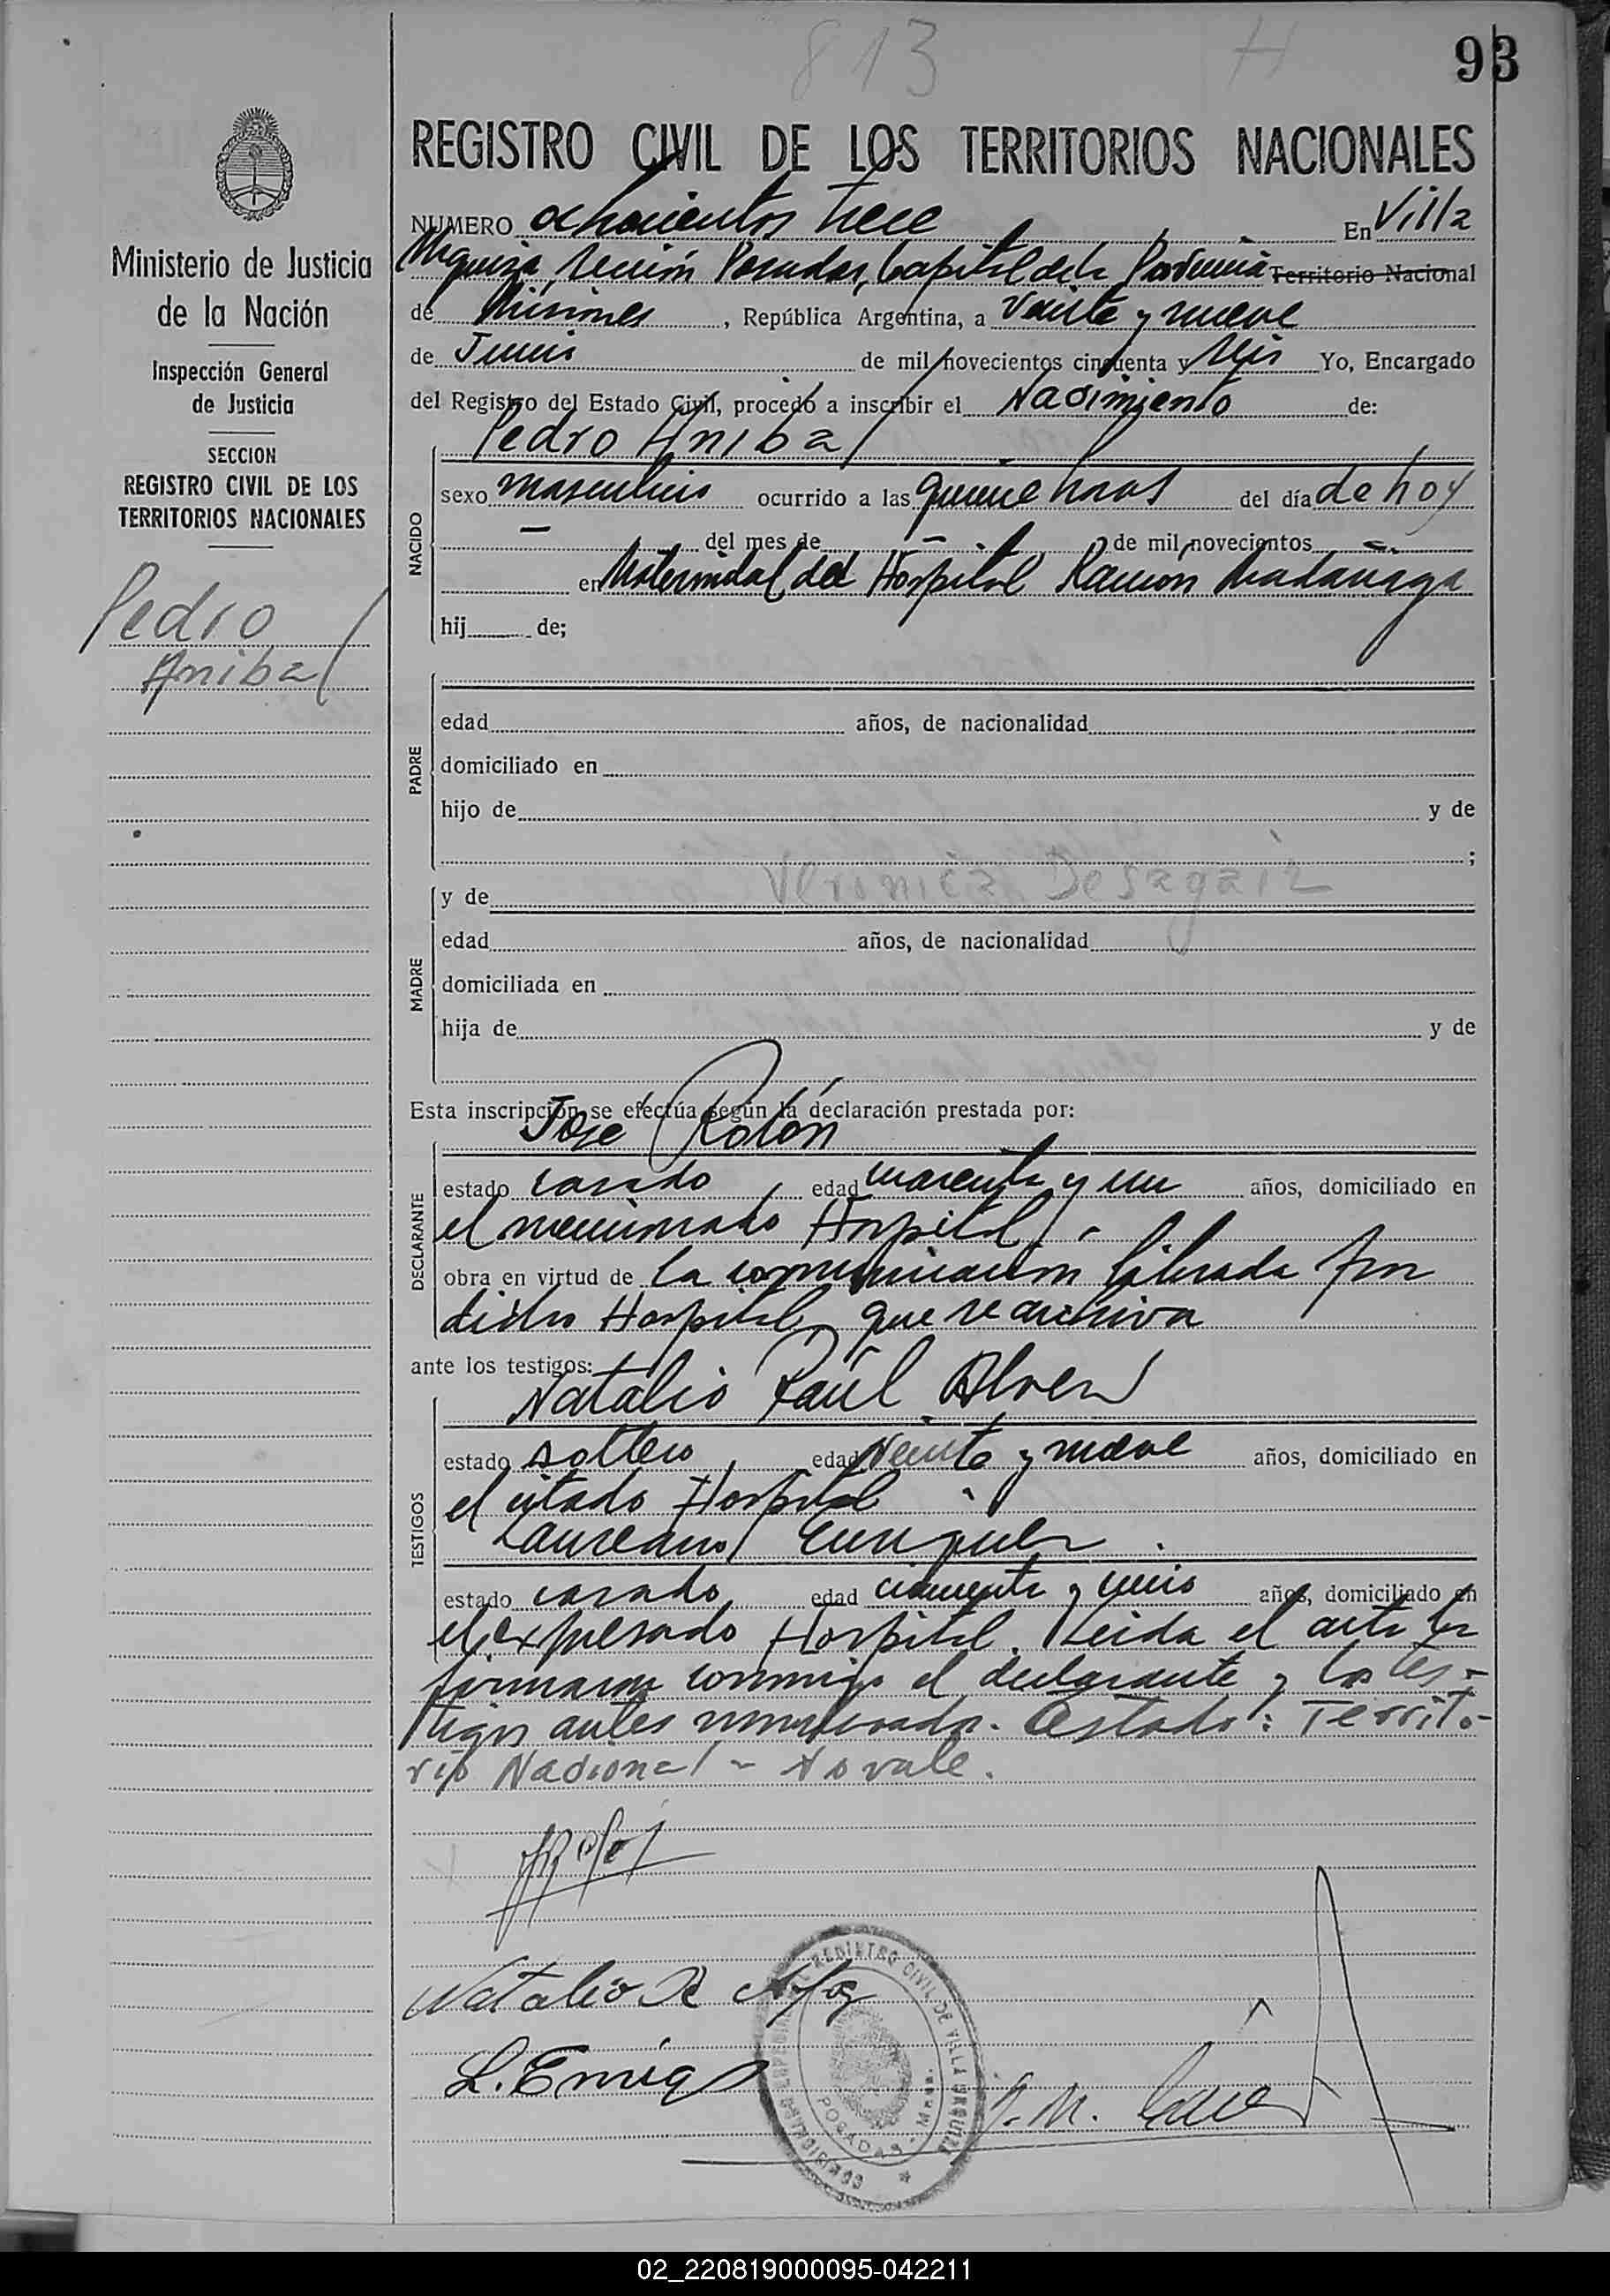 813 H
93
REGISTRO CIVIL DE LOS TERRITORIOS NACIONALES
Ministerio de Justicia
de la Nación
Inspección General
de Justicia
SECCION
REGISTRO CIVIL DE LOS
TERRITORIOS NACIONALES
Pedro
Anibal
NUMERO ochocientos trece En Villa
Urquiza, sección Posadas, Capital de la Provincia Territorio Nacional
de Misiones, República Argentina, a veinte y nueve
de Junio de mil novecientos cincuenta y seis Yo, Encargado
del Registro del Estado Civil, procedo a inscribir el Nacimiento de:
Pedro Anibal
NACIDO
sexo masculino ocurrido a las quince horas del día de hoy
— del mes de — de mil novecientos —
en Maternidad del Hospital Ramón Madariaga
hij de;
PADRE
edad años, de nacionalidad
domiciliado en
hijo de y de
;
Veronica Desagair
MADRE
y de
edad años, de nacionalidad
domiciliada en
hija de y de
Esta inscripción se efectúa según la declaración prestada por:
José Rolón
DECLARANTE
estado casado, edad cuarenta y un años, domiciliado en
el mencionado Hospital
obra en virtud de la comunicación librada por
dicho Hospital, que se archiva
ante los testigos:
Natalio Raúl
TESTIGOS
estado soltero, edad veinte y nueve años, domiciliado en
el citado Hospital
Laureano Enriquez
estado casado, edad cincuenta y cinco años, domiciliado en
el expresado Hospital. Leida el acta la
firmaron conmigo el declarante y los tes-
tigos antes nombrados. Testado: Territo-
rio Nacional - No vale.
Natalio R
L. Enriq
REGISTRO CIVIL DE VILLA URQUIZA
POSADAS - Mnes.
02_220819000095-042211